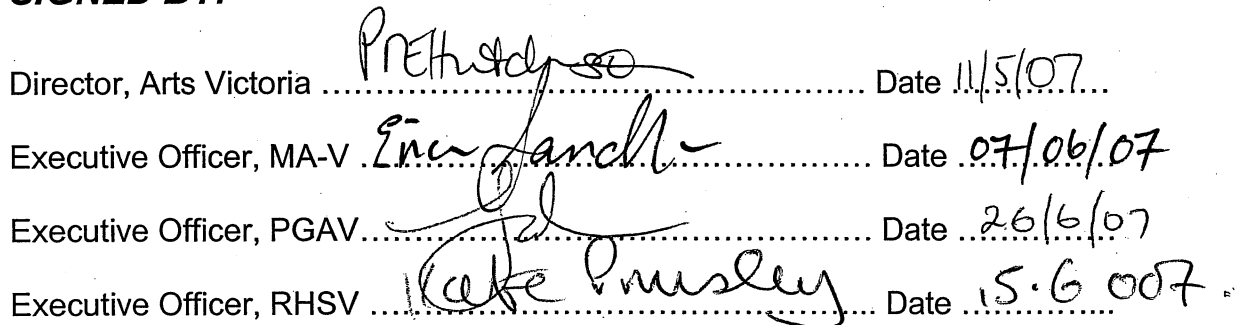 SIGNED BY:
Director, Arts Victoria PMEHutchinson Date 11/5/07
Executive Officer, MA-V Date 07/06/07
Executive Officer, PGAV Date 26/6/07
Executive Officer, RHSV Kate Prinsley Date 15.6 007.